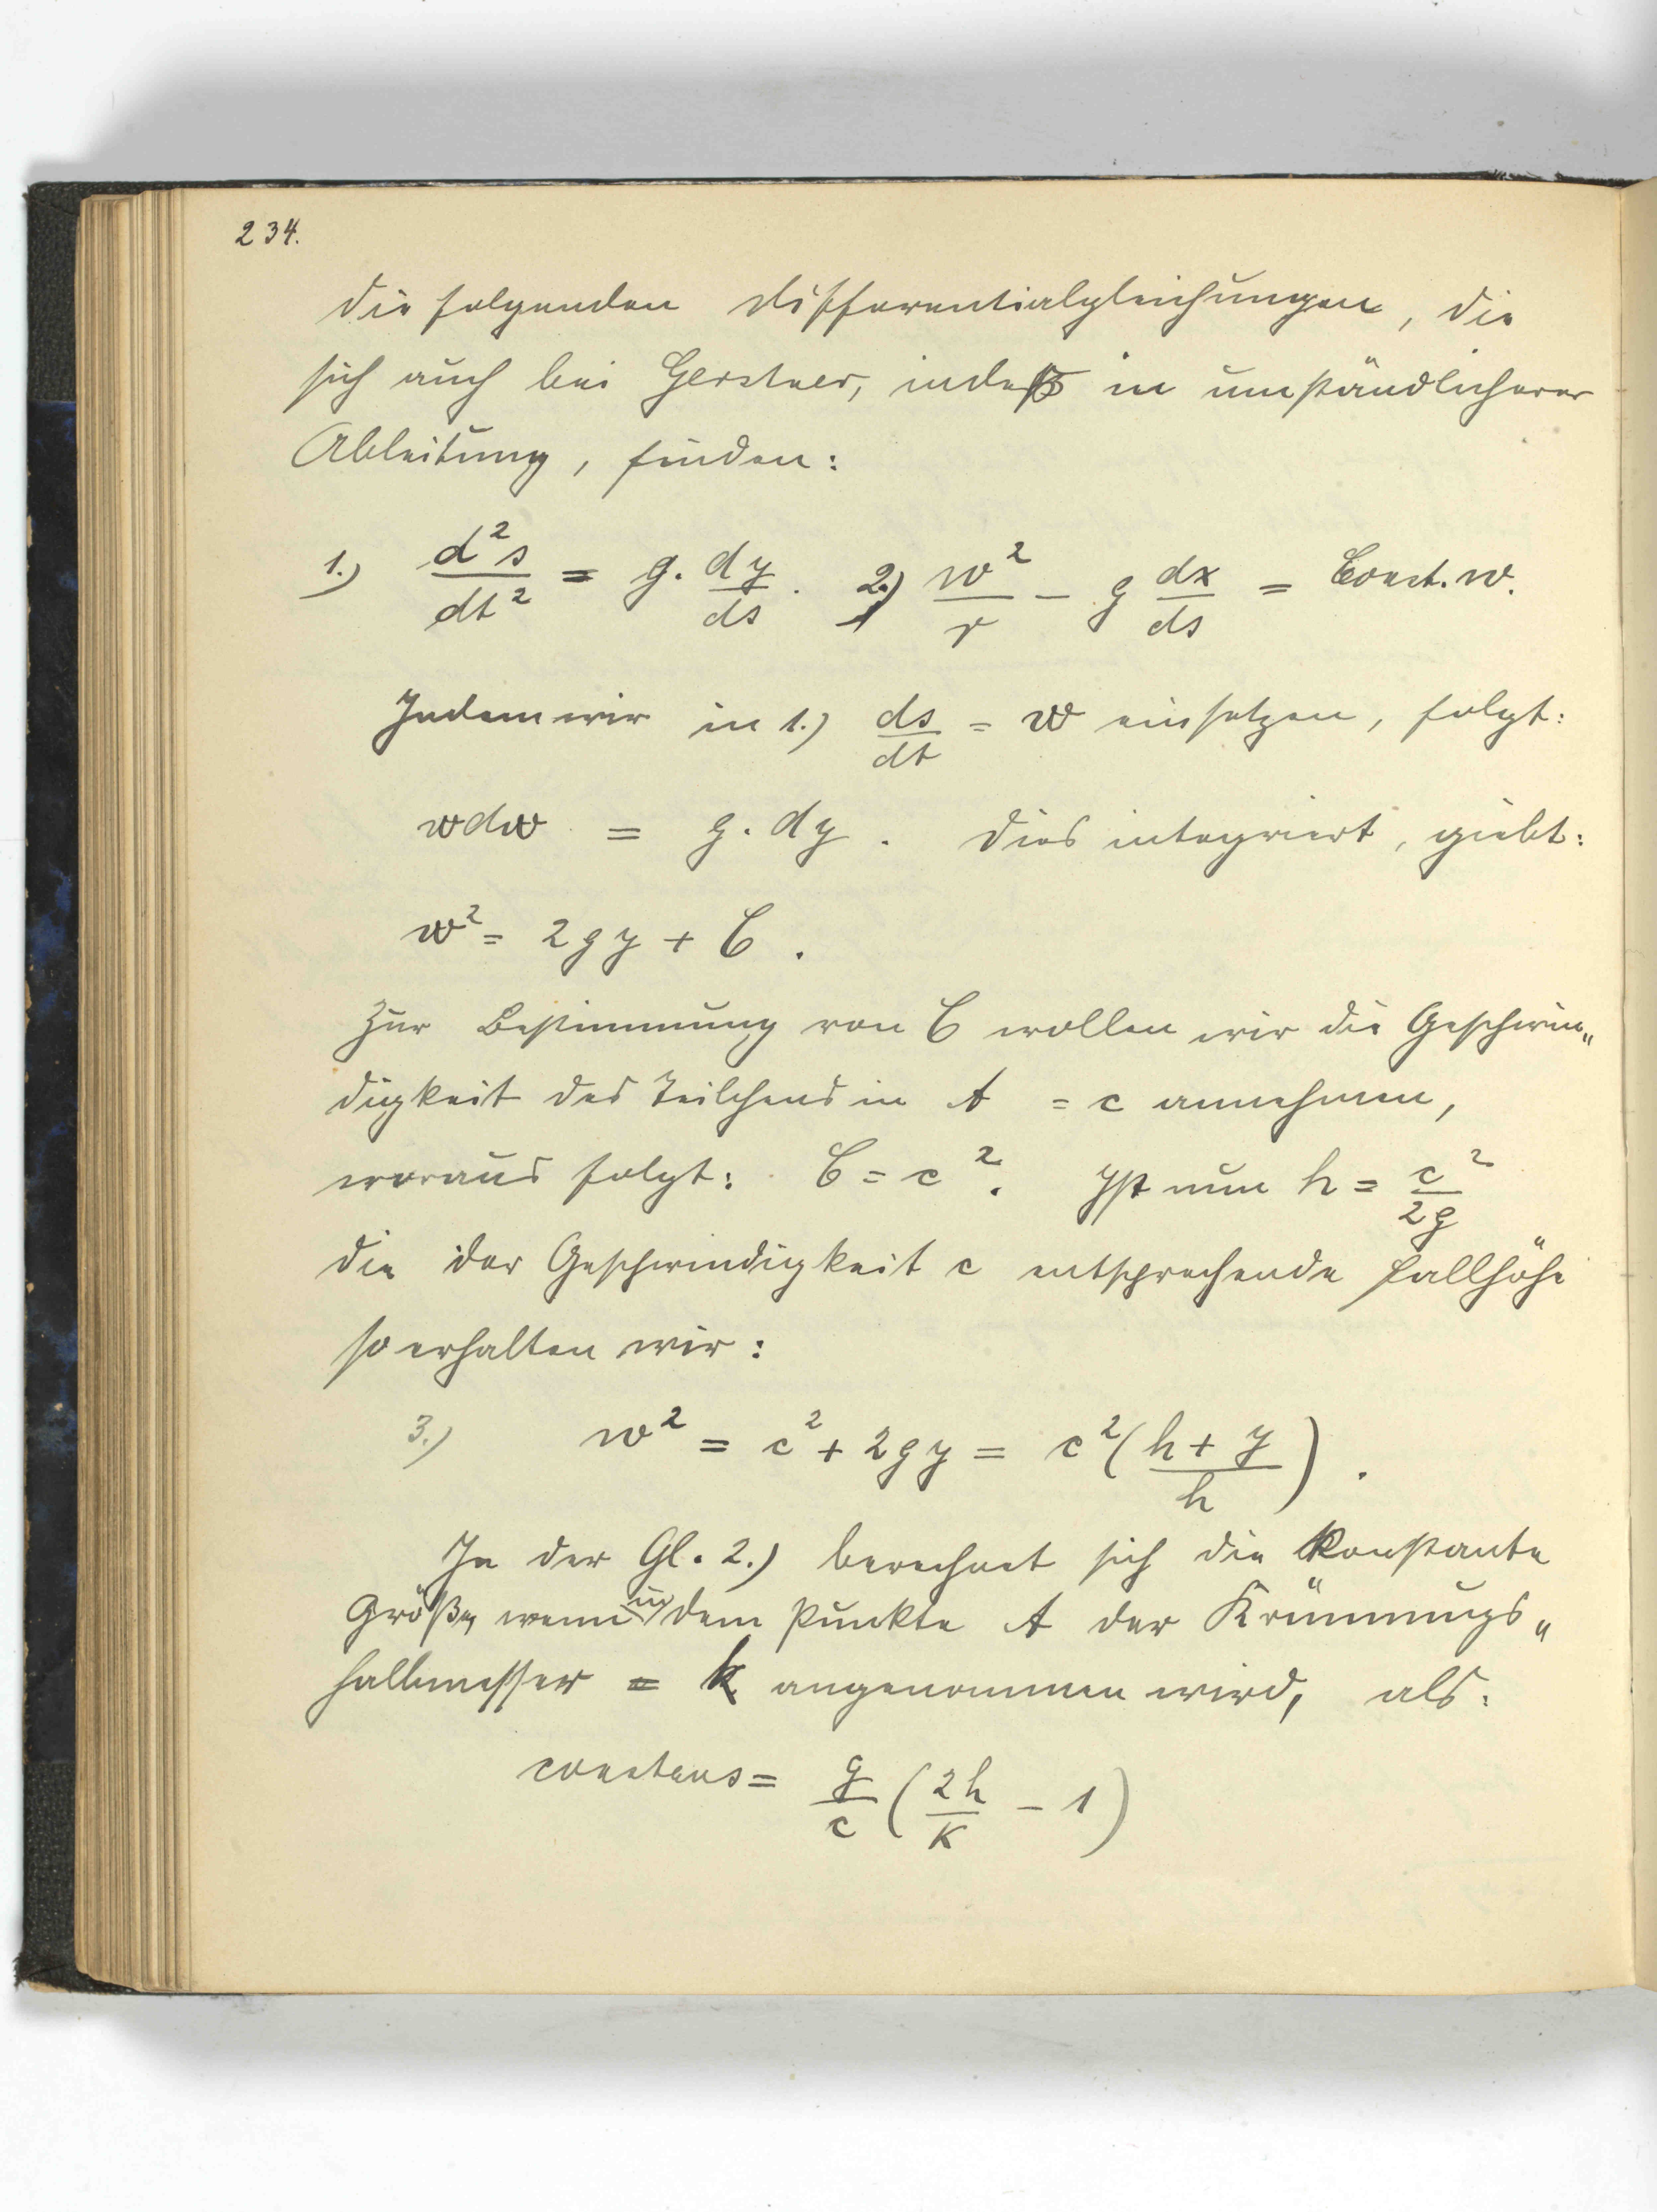 234.
die folgenden Differentialgleichungen, die
sich auch bei Gerstner, indeß in umständlicherer
Ableitung, finden:
1.) d²s/dt² = g. dy/ds . 2.) w²/r - g dx/ds = Const. w.
Indem wir in 1.) ds/dt = w einsetzen, folgt:
wdw = g. dy . Dies integriert, giebt:
w² = 2gy + C .
Zur Bestimmung von C wollen wir die Geschwin„
digkeit des Teilchens in A = c annehmen,
woraus folgt: C = c². Ist nun h = c²/2g
die der Geschwindigkeit c entsprechende Fallhöhe
so erhalten wir:
3.) w² = c² + 2gy = c² (h + y/h) .
In der Gl. 2.) berechnet sich die Konstante
Größe, wenn in dem Punkte A der Krümmungs„
halbmesser = k angenommen wird, als:
constans = g/c (2h/K - 1)